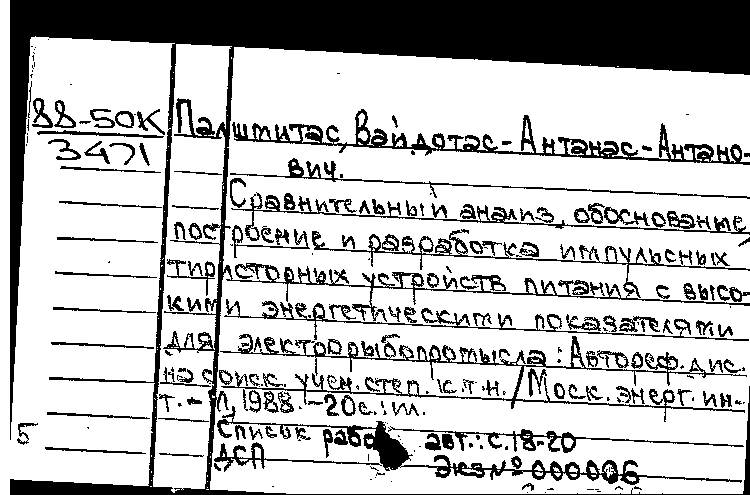 88-50К
3471
Палштитас, Вайдотас-Антанас-Антано-
вич.
Сравнительный анализ, обоснование,
построение и разработка импульсных
тиристорных устройств питания с высо-
кими энергетическими показателями
для электрорыбопромысла: Автореф. дис.
на соиск. учен. степ. к.т.н. / Моск. энерг. ин-
т. - М, 1988. - 20с.: ил.
5
Список авт.: с.18-20
ДСП
Экз № 000006